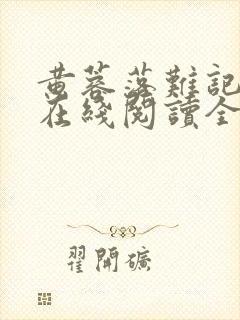 黄蓉落難記
在綫閱讀全
翟開礦